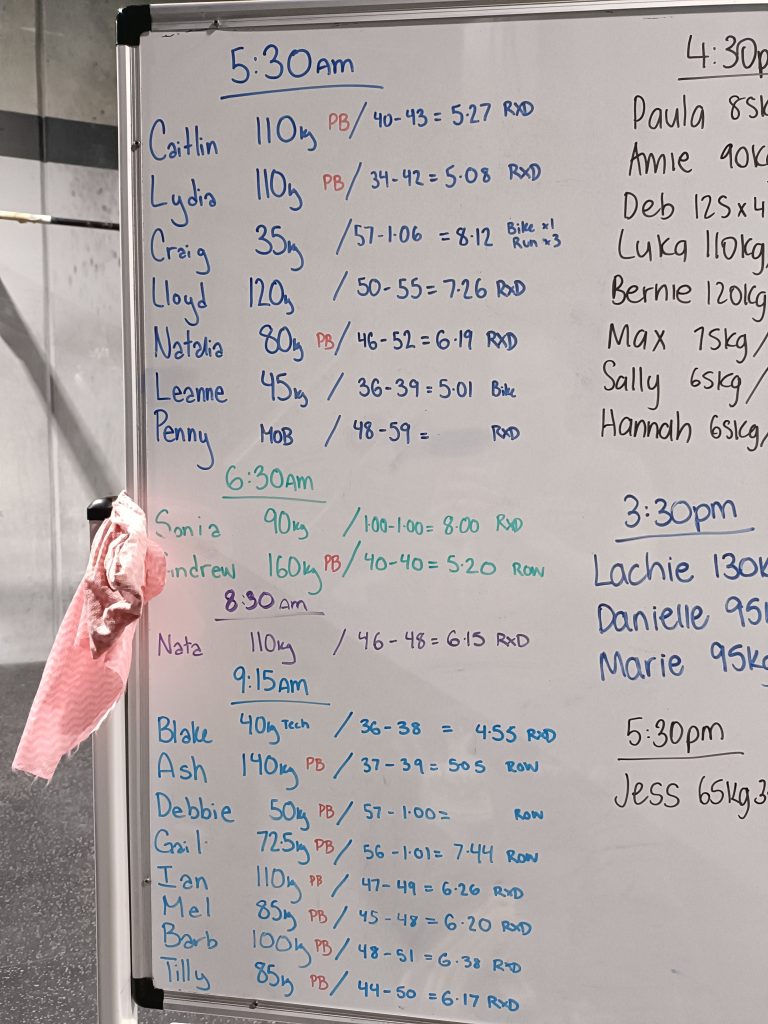 5:30am
Caitlin 110kg PB / 40-43 = 5.27 RXD
Lydia 110kg PB / 34-42 = 5.08 RXD
Craig 35kg / 57-1.06 = 8.12 Bike x1
Run x3
Lloyd 120kg / 50-55 = 7.26 RXD
Natalia 80kg PB / 46-52 = 6.19 RXD
Leanne 45kg / 36-39 = 5.01 Bike
Penny MOB / 48-59 = RXD
6:30am
Sonia 90kg / 1.00-1.00 = 8.00 RXD
Andrew 160kg PB / 40-40 = 5.20 ROW
8:30am
Nata 110kg / 46-48 = 6.15 RXD
9:15am
Blake 40kg Tech / 36-38 = 4.55 RXD
Ash 140kg PB / 37-39 = 505 ROW
Debbie 50kg PB / 57-1.00 = ROW
Gail 72.5kg PB / 56-1.01 = 7.44 ROW
Ian 110kg PB / 47-49 = 6.26 RXD
Mel 85kg PB / 45-48 = 6.20 RXD
Barb 100kg PB / 48-51 = 6.38 RXD
Tilly 85kg PB / 44-50 = 6.17 RXD
4:30p
Paula 85k
Amie 90kg
Deb 125x4
Luka 110kg
Bernie 120kg
Max 75kg /
Sally 65kg /
Hannah 65kg /
3:30pm
Lachie 130k
Danielle 95k
Marie 95kg
5:30pm
Jess 65kg 3